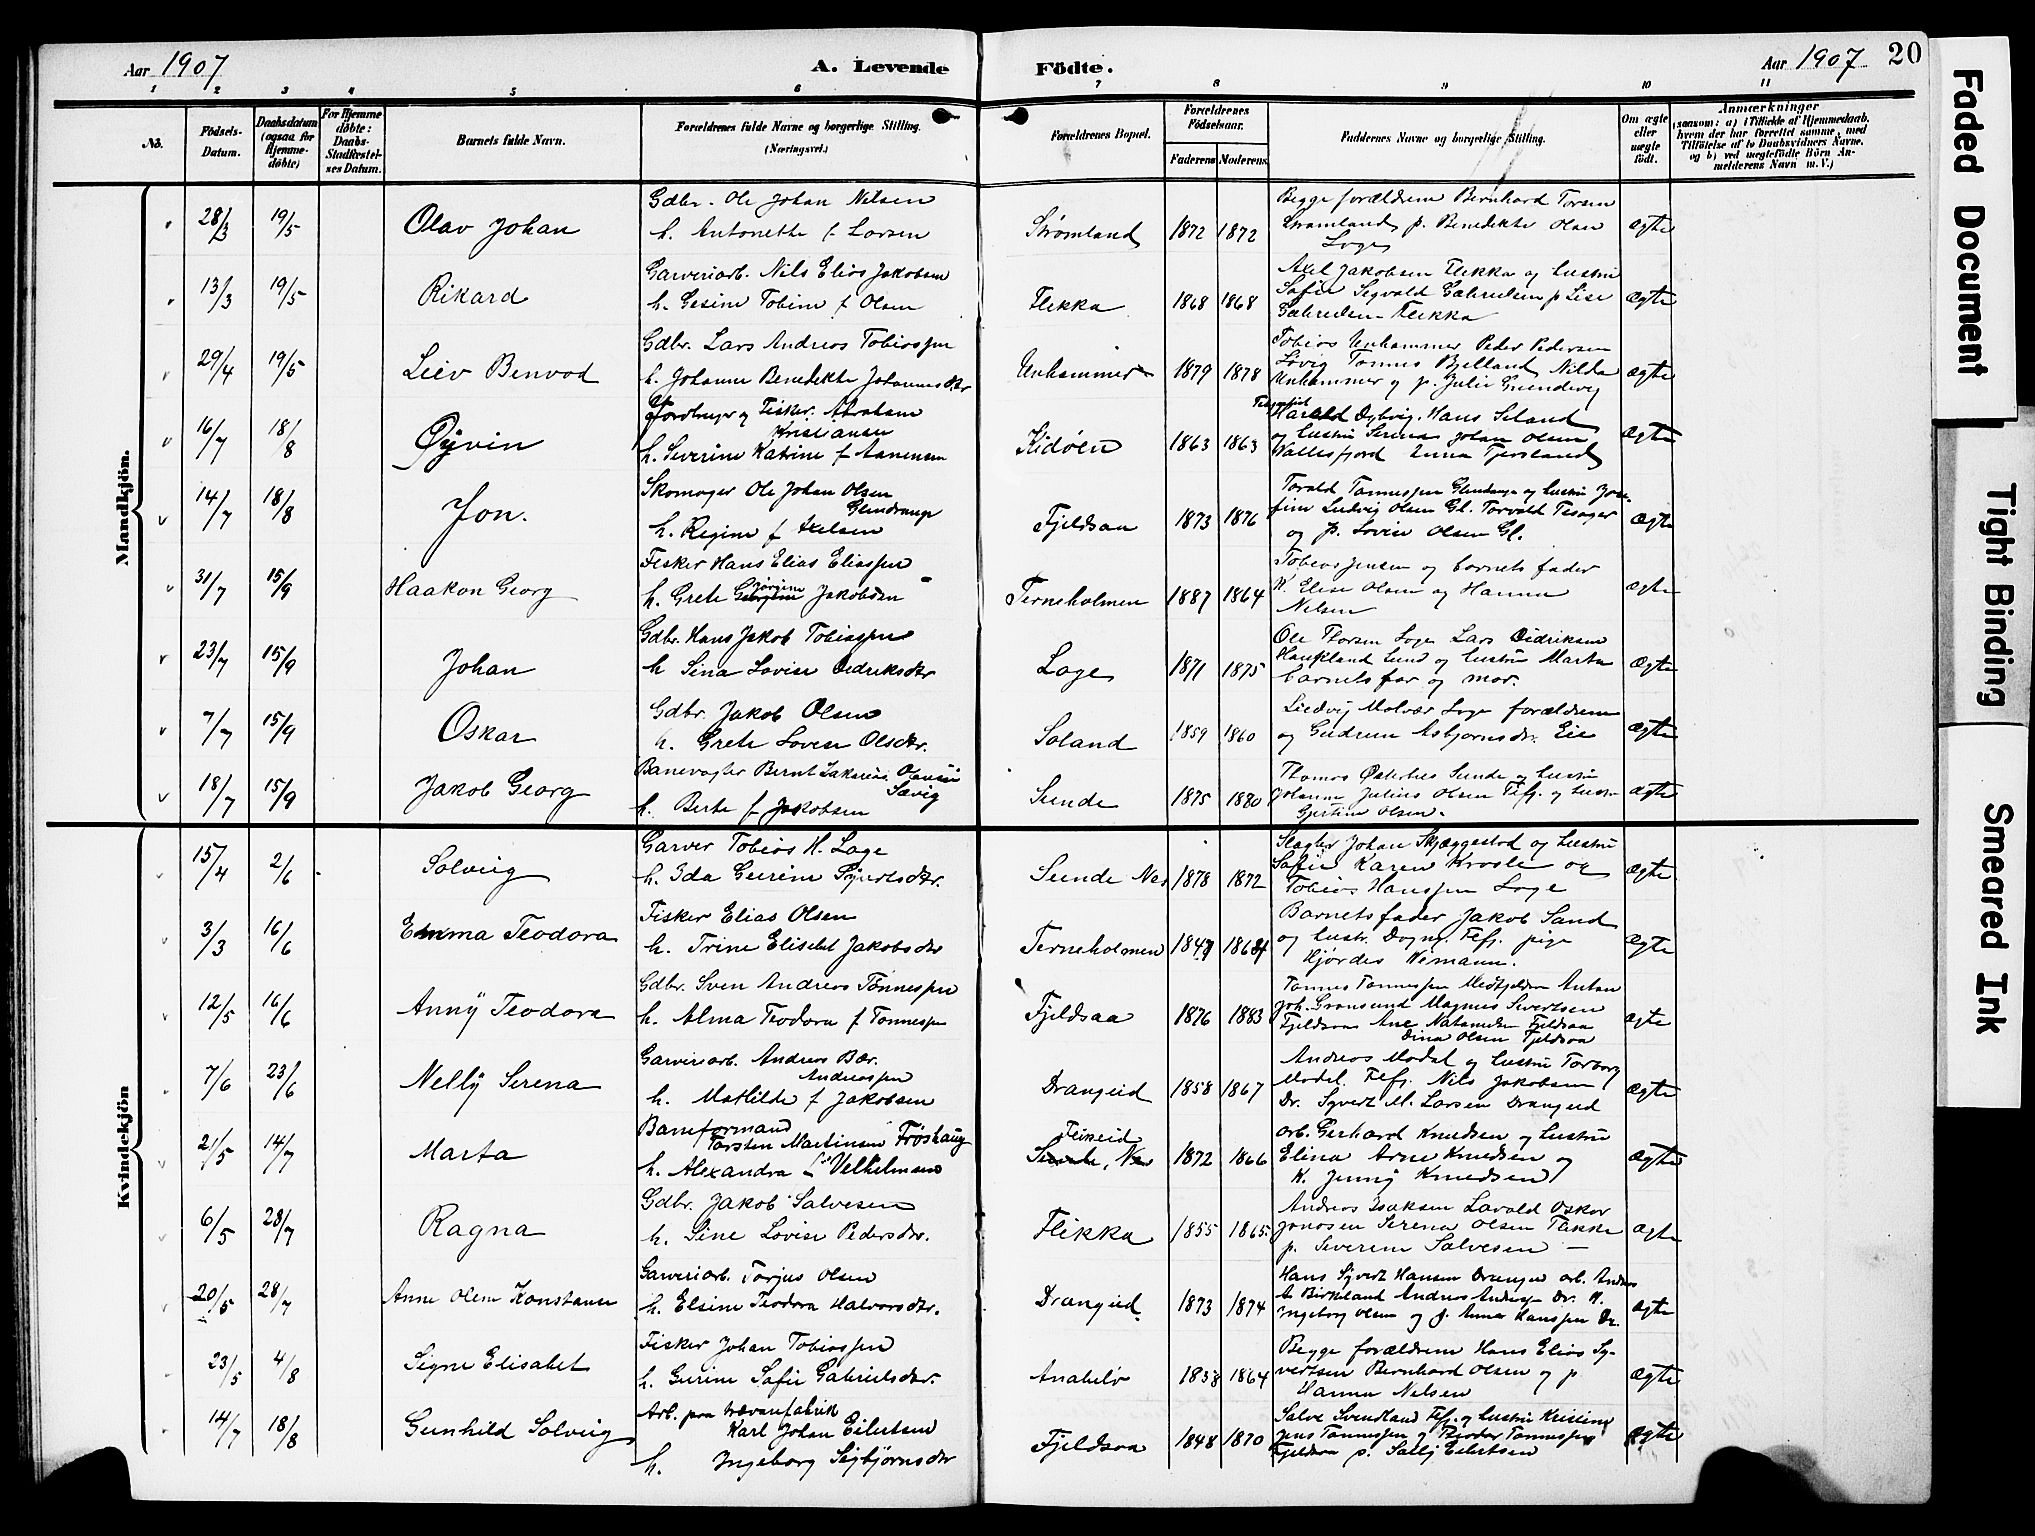 Aar 1907
A. Levende Födte.
Aar 1907
20
1 2 3 4 5 6 7 8 9 10 11
No.
Födsels-Datum.
Daabsdatum (ogsaa for Hjemmedöbte)
For Hjemmedöbte: Daabs-Stadfæstelses Datum.
Barnets fulde Navn.
Forældrenes fulde Navne og borgerlige Stilling. (Næringsvei.)
Forældrenes Bopæl.
Forældrenes Födselsaar.
Faderens Moderens
Faddernes Navne og borgerlige Stilling.
Om ægte eller uægte födt.
Anmærkninger
saasom: a) i Tilfælde af Hjemmedaab, hvem der har forrettet samme, med Tilföielse af to Daabsvidners Navne, og b) ved uægtefödte Börn Anmelderens Navn m. V.)
Mandkjön.
28/3 19/5 Olav Johan
Gdbr. Ole Johan Nilsen
h. Antonette f Larsen
Strømland 1872 1872
Begge forældrene Bernhard Torsen
Strømland p. Benedikte Olsen
Loge
Ægte
13/3 19/5 Rikard
Garveriarb. Nils Elias Jakobsen
h. Gesine Tobine f Olsen
Flekka 1868 1868
Axel Jakobsen Flekka og hustru
Sofie Segvald Gabrielsen p Lise
Gabrielsen Flekka
Ægte
29/4 19/5 Leiv Benvod
Gdbr. Lars Andreas Tobiassen
h. Johanne Benedikte Johannesdtr
Unhammer 1879 1878
Tobias Unhammer Peder Pedersen
Løvig Tonnes Bjelland, Nilda
Unhammer og p. Julie
Ægte
16/7 18/8 Øyvin
Jordbruger og Fisker. Abraham
Kristiansen
h. Severine Katrine f Aanensen
Kidøen 1863 1863
Harald Hans Seland
og hustru Serena Johan Olsen
Anna
Ægte
14/7 18/8 Jon.
Skomager Ole Johan Olsen
Glendrange
h. Regine f Axelsen
Fjeldsaa 1873 1876
Torald Tonnessen Glendrange og hustru Jose-
fine Ludvig Olsen Gl. Torvald Tesager
og p. Lovise Olsen Gl.
Ægte
31/7 15/9 Haakon Georg
Fisker Hans Elias Eliassen
Jørgine
h. Grete Georgine Jakobsen
Terneholmen 1887 1864
Tobias Jensen og barnets fader
K. Elise Olsen og Hanna
Nilsen
Ægte
23/7 15/9 Johan
Gdbr. Hans Jakob Tobiassen
h Sina Lovise Didriksdtr
Loge 1871 1875
Ole Thorsen Loge Lars Didriksen
Haukland Lund og hustru Marta
barnets far og mor.
Ægte
7/7 15/9 Oskar
Gdbr. Jakob Olsen
h. Grete Lovise Olsdtr.
Soland 1859 1860
Ludvig Loge forældrene
og Gudrun Asbjørnsdr. Eie
Ægte
18/7 15/9 Jakob Georg
Banevogter Bernt Zakarias Olausen
Sævig
h. Berte f Jakobsen
Sunde 1875 1880
Thomas Østerhus Sunde og hustru
Johanne Julius Olsen Fefj. og hustru
Gjertine Olsen.
Ægte
Kvindekjön
15/4 2/6 Solveig
Garver Tobias H. Loge
h. Ida Gurine Syvertsdtr.
Sunde Nes 1878 1872
Slagter Johan Skjæggestad og hustru
Sofie Karen Krosle og
Tobias Hanssen Loge
Ægte
3/3 16/6 Emma Teodora
Fisker Elias Olsen
h. Trine Elisabet Jakobsdtr
Terneholmen 1847 1864
Barnets fader Jakob Sand
og hustr. Dagny. Fefj. pige
Hjørdes Nemann.
Ægte
12/5 16/6 Anny Teodora
Gdbr. Sven Andreas Tønnessen
h. Alma Teodora f Tønnessen
Fjeldsaa 1876 1883
Tonnes Tonnessen Medfjelden Anton
Joh. Grønsund Magnus Sivertsen
Fjeldsaa Ane Fjeldsaa
Dina Olsen Fjeldsaa
Ægte
7/6 23/6 Nelly Serena
Garveriarb. Andreas Bær.
Andreassen
h. Mathilde f Jakobsen
Drangeid 1858 1867
Andreas Modal og hustru Torborg
Modal. Fefj. Nils Jakobsen
Dr. Syvert M. Larsen Drangeid
Ægte
21/5 14/7 Marta
Baneformand
Torsten Martinsen Frøshaug
h. Alexandra f Velhelmsen
Feikeid
Sunde, Nes 1872 1866
arb. Gerhard Knudsen og hustru
Elina Arne Knudsen og
K. Jenny Knudsen
Ægte
6/5 28/7 Ragna
Gdbr. Jakob Salvesen
h. Sine Lovise Pedersdtr.
Flikka 1855 1865
Andreas Isaksen Lavold Oskar
Jonassen Serena Olsen Takke
p. Severine Salvesen
Ægte
20/5 28/7 Anne Olene Konstanse
Garveriarb. Torjus Olsen
h. Elsine Teodora Halvorsdtr.
Drangeid 1873 1874
Hans Syvert Hansen Drangeid arb. Andreas
A Birkeland Andreas Anders. Dr. K.
Ingeborg Olsen og p. Anna Hanssen Dr.
Ægte
23/5 4/8 Signe Elisabet
Fisker Johan Tobiassen
h. Gurine Sofie Gabrielsdtr.
Anabelø 1858 1864
Begge forældrene Hans Elias Sy-
vertsen Bernhard Olsen og p
Hanna Nilsen
Ægte
14/7 18/8 Gunhild Solveig
Arb. paa trævarefabrik
Karl Johan Eilertsen
h. Ingeborg Seibjørnsdtr
Fjeldsaa 1848 1870
Salve Svendland Fefj. og hustru Kristine
Jens Tønnessen og Teodor Tønnessen
Fjeldsaa p. Sally Eilertsen
Ægte
Faded Document
Tight Binding
Smeared Ink